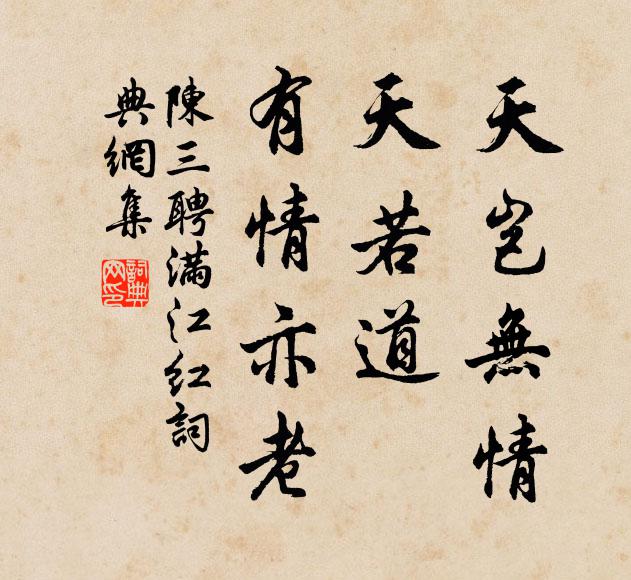 天豈無情
天若道
有情亦老
陳三聘滿江紅詞
典網集
詞典
网印